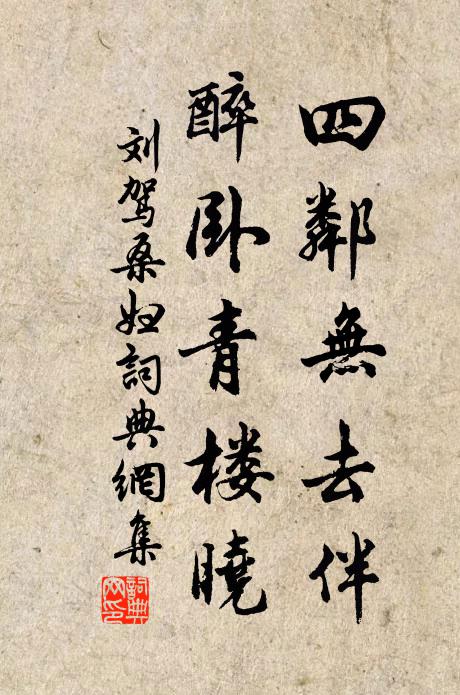 四鄰無去伴
醉卧青楼曉
刘驾桑妇詞典網集
詞典网印